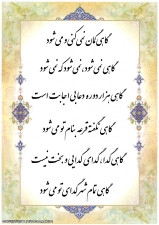 گاهی گمان نمی کنی ومی شود
گاهی نمی شود، نمی شود که نمی شود
گاهی هزار دوره دعا بی اجابت است
گاهی نگفته قرعه بنام تو می شود
گاهی گدای گدایی و بخت نیست
گاهی تمام شهر گدای تو می شود